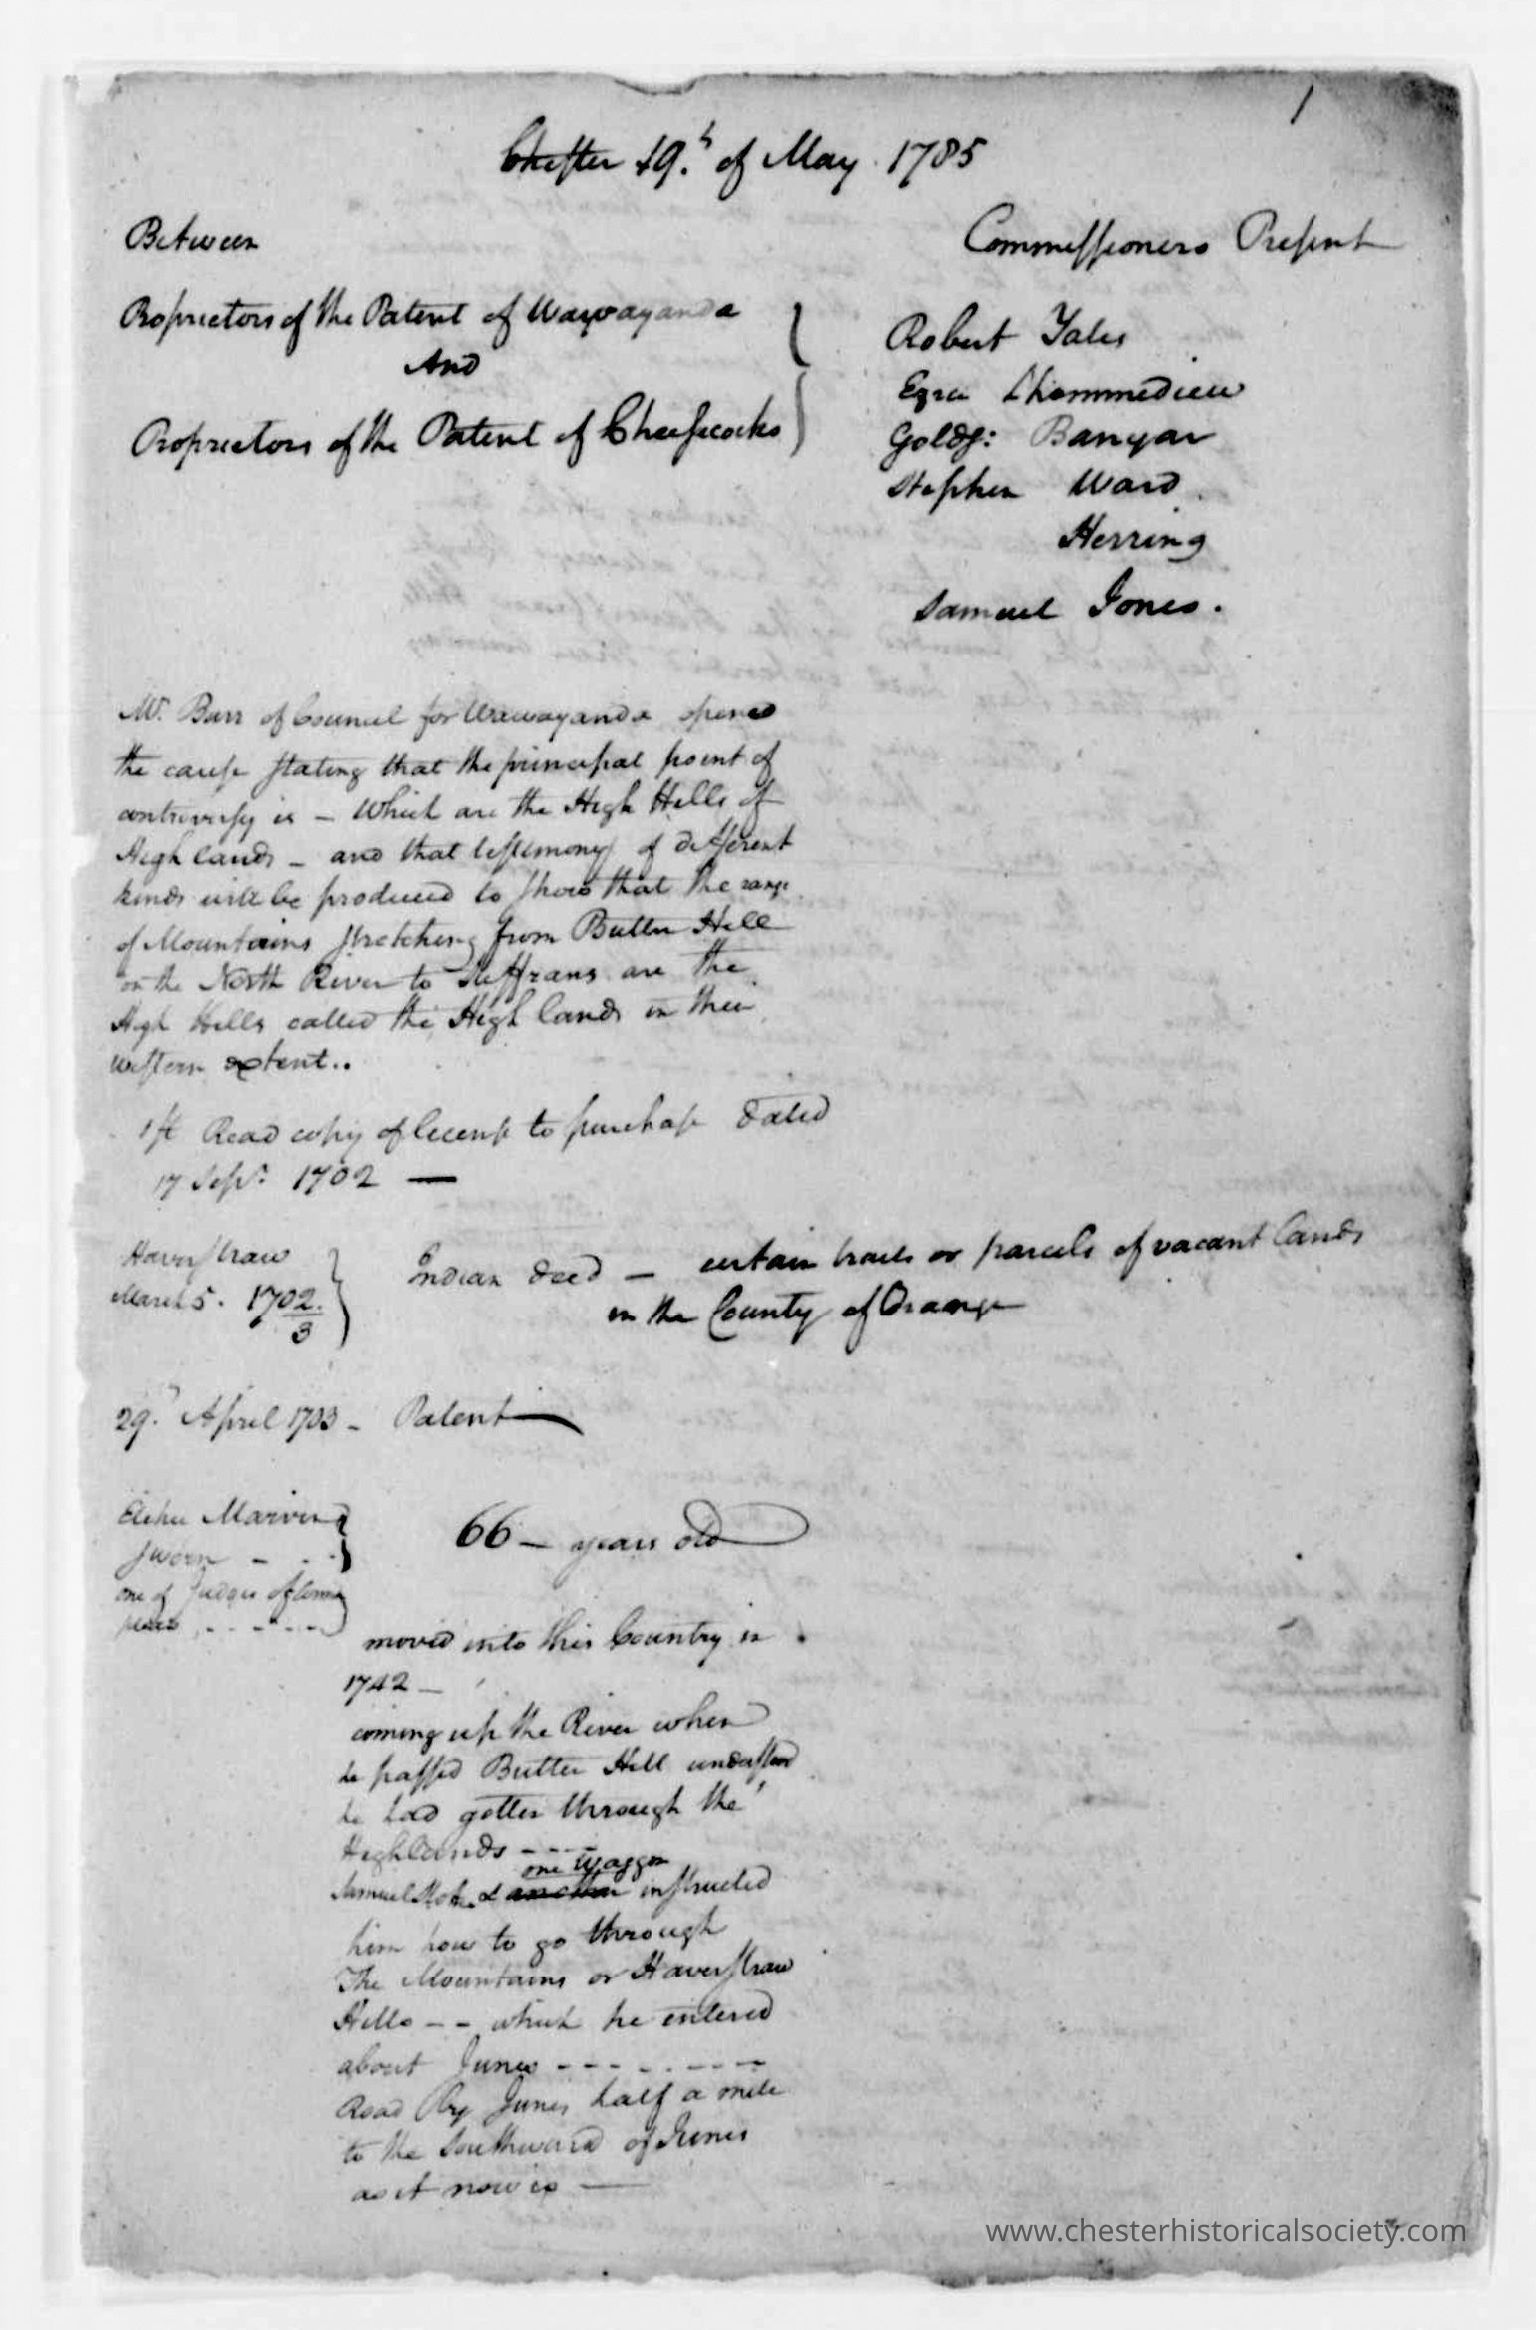 1
Chester 19.h of May. 1785
Between
Commissioners Present
Proprietors of the Patent of Wawayanda
And
Proprietors of the Patent of Cheesecocks
Robert Yates
Ezra Lhommedieu
Golds: Banyar
Stephen Ward
Herring
Samuel Jones.
Mr. Burr of Councel for Wawayanda opened
the cause stating that the principal point of
controversy is – Which are the High Hills of
Highlands – and that testimony of different
kinds will be produced to show that the range
of Mountains stretching from Butter Hill
on the North River to Suffrans are the
High Hills called the High lands in their
western extent..
1st Read copy of licence to purchase dated
17 Sepr. 1702 —
Haverstraw
March 5. 1702/3
Indian deed – certain tracts or parcels of vacant lands
in the County of Orange
29.h April 1703 – Patent
Elihu Marvin
sworn – - -
one of Judges of Common
pleas - - - - -
66 – years old
moved into this Country in
1742 –
coming up the River when
he passed Butter Hill understood
he had gotten through the
Highlands - - - -
one Waggon
Samuel & another instructed
him how to go through
The Mountains or Haverstraw
Hills – – which he entered
about Junes - - - - - - - -
Road by Junes half a mile
to the Southward of Junes
as it now is —
www.chesterhistoricalsociety.com